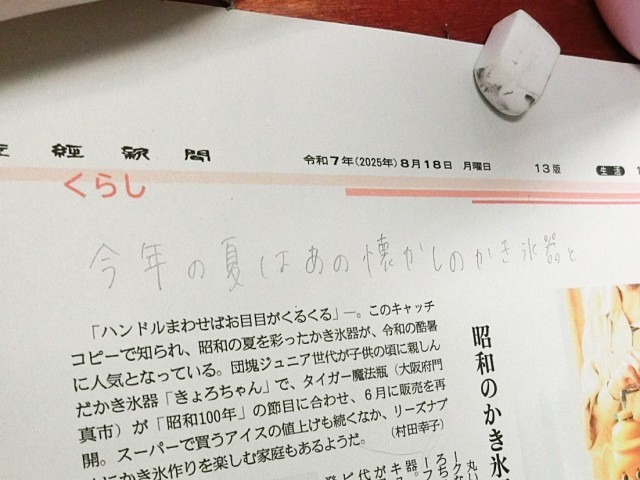 経新聞
令和7年(2025年)8月18日 月曜日
13版
生活
くらし
今年の夏はあの懐かしのかき氷器と
「ハンドルまわせばお目目がくるくる」―。このキャッチ
コピーで知られ、昭和の夏を彩ったかき氷器が、令和の酷暑
に人気となっている。団塊ジュニア世代が子供の頃に親しん
だかき氷器「きょろちゃん」で、タイガー魔法瓶(大阪府門
真市)が「昭和100年」の節目に合わせ、6月に販売を再
開。スーパーで買うアイスの値上げも続くなか、リーズナブ
にかき氷作りを楽しむ家庭もあるようだ。
(村田幸子)
昭和のかき氷